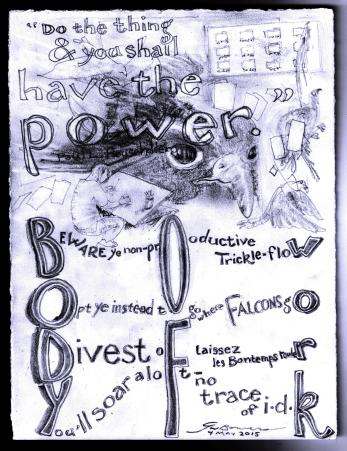 "Do the thing
& you shall
have the
power."
BEWARE ye non-prOductive
Trickle-flow
Opt ye instead to go where FALCONS go
Divest oF laissez
les Bontemps rouler
You'll soar aloft-no
trace
of i.d.k
4 May 2015